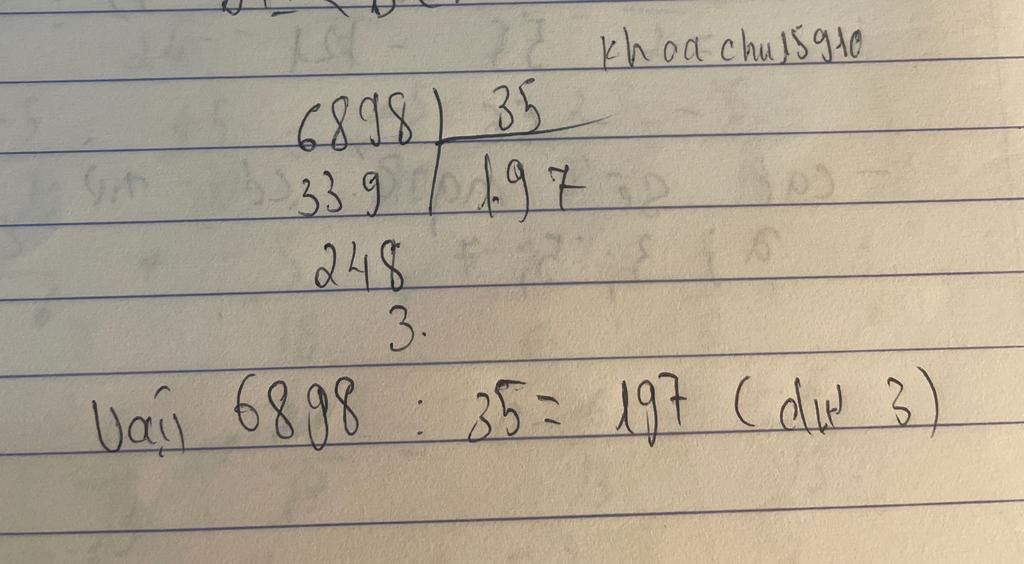 khoachu15910
6898 35
339 197
248
3.
Vậy 6898 : 35 = 197 (dư 3)